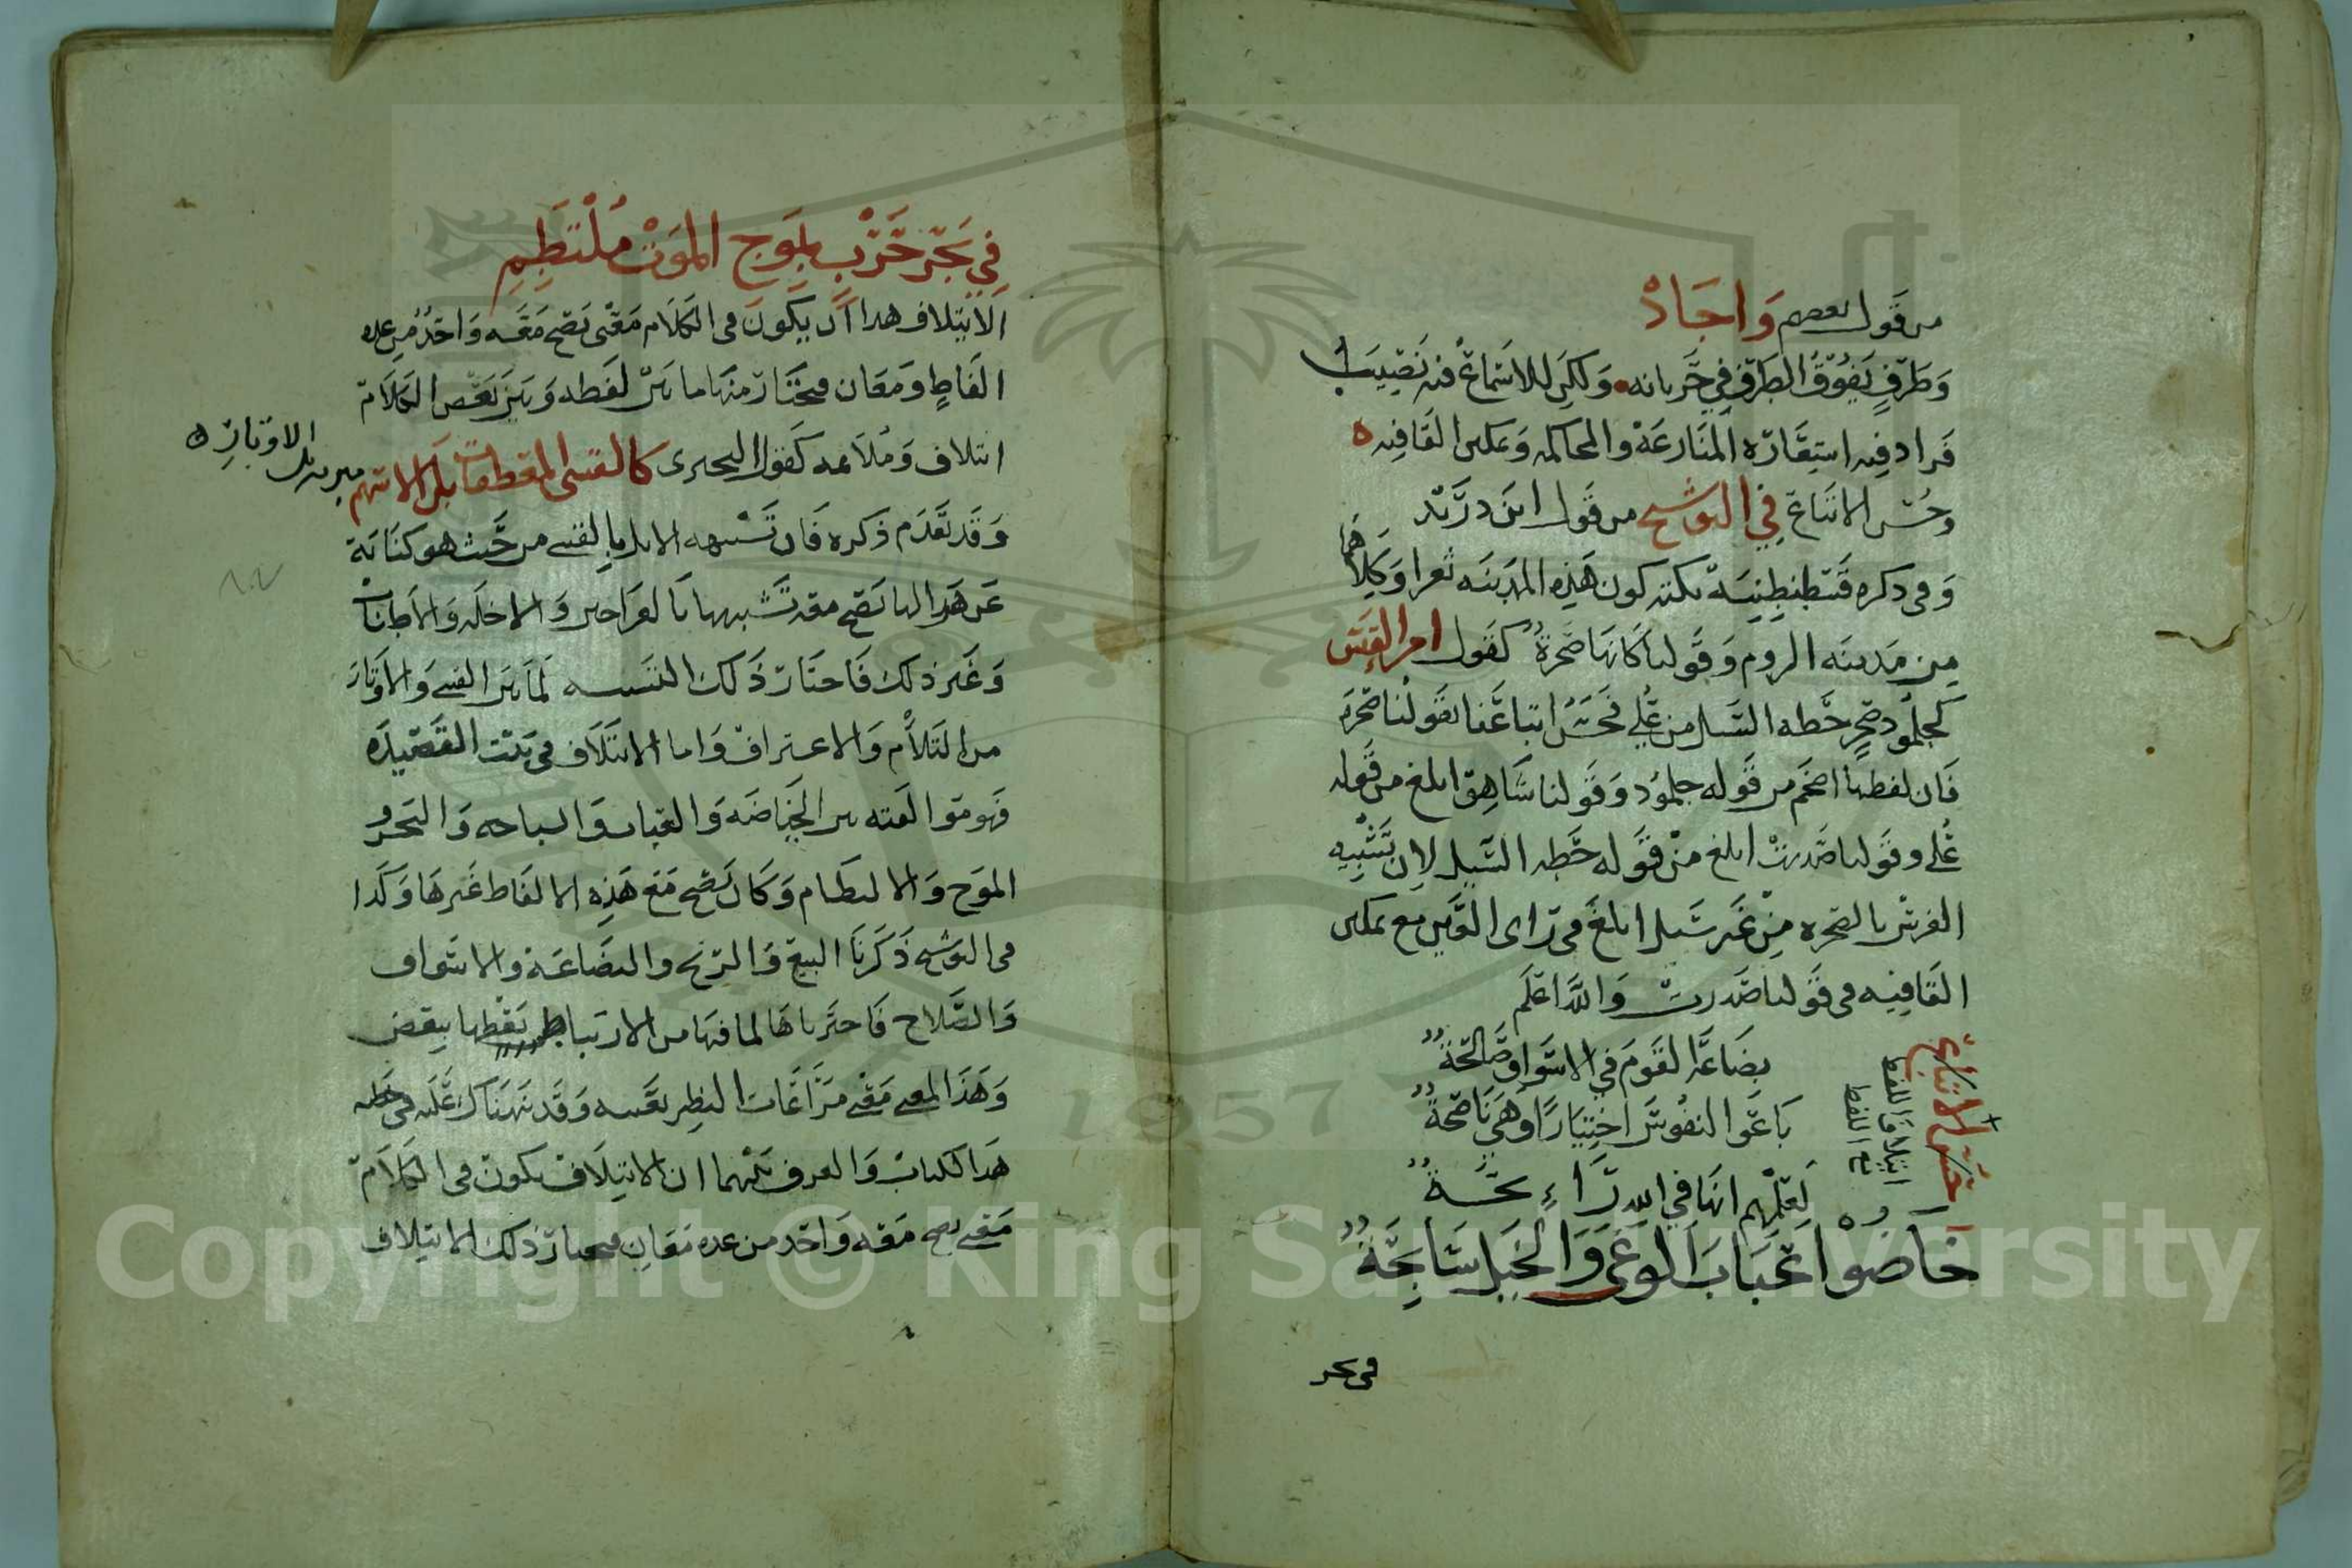 من قول بعضهم واجاد
وطرف يفوق الطرف في جريانه ولكن للاسماع فيه نصيب
فزاد فيه استعارة المنازعة والمحاكمة وتمكين القافيه
وحسن الاتباع في التوشيح من قول ابن دريد
وفي ذكره قسطنطينية نكتة كون هذه المدينه ثغرا وكلاهما
من مدينه الروم وقولنا كانها صخرة كقول امرء القيس
كجلمود صخر حطه السيل من علي فحسن اتباعنا بقولنا صخرة
فان لفظها افخم من قوله جلمود وقولنا شاهق ابلغ من قوله
علي وقولنا صدرت ابلغ من قوله حطه السيل لان تشبيه
الفرس بالصخره من غير سيل ابلغ في راى العين مع تمكين
القافيه في قولنا صدرت والله اعلم
حسن الاتباع
ائتلاف اللفظ
مع اللفظ
بضاعة القوم في الاسواق صالحة
باعوا النفوس اختيارا وهي ناصحة
لعلهم انها في الله رابحة
خاضوا عباب الوغى والخيل سابحة
في بحر
في بحر حرب بموج الموت ملتطم
الائتلاف هذا ان يكون في الكلام معنى يصح معه واحد من عده
الفاظ ومعان فيختار منها ما بين لفظه وبين بعض الكلام
ائتلاف وملاءمه كقول البحتري كالقسي المعطفات بل الاسهم
مبريه بل الاوتار
وقد تقدم ذكره فان تشبيه الابل بالقسي من حيث هو كناية
عن هزالها يصح معه تشبيهها بالعراجين والاخلة والاطناب
وغير ذلك فاختار ذلك التشبيه لما بين القسي والاوتار
من التلاؤم والاعتراف واما الائتلاف في بيت القصيده
فهو موالفته بين الخياضه والعباب والسباحه والبحر و
الموج والالتطام وكان يصح مع هذه الالفاظ غيرها وكذا
في التوشيح ذكرنا البيع والربح والبضاعة والاسواق
والصلاح فاخترناها لما فيها من الارتباط بعضها ببعض
وهذا المعنى معنى مراعات النظير بعينه وقد نبهناك عليه في خطبه
هذا الكتاب والفرق بينهما ان الائتلاف يكون في الكلام
معنى يصح معه واحد من عده معان فيختار ذلك الائتلاف
Copyright © King Saud University
1957